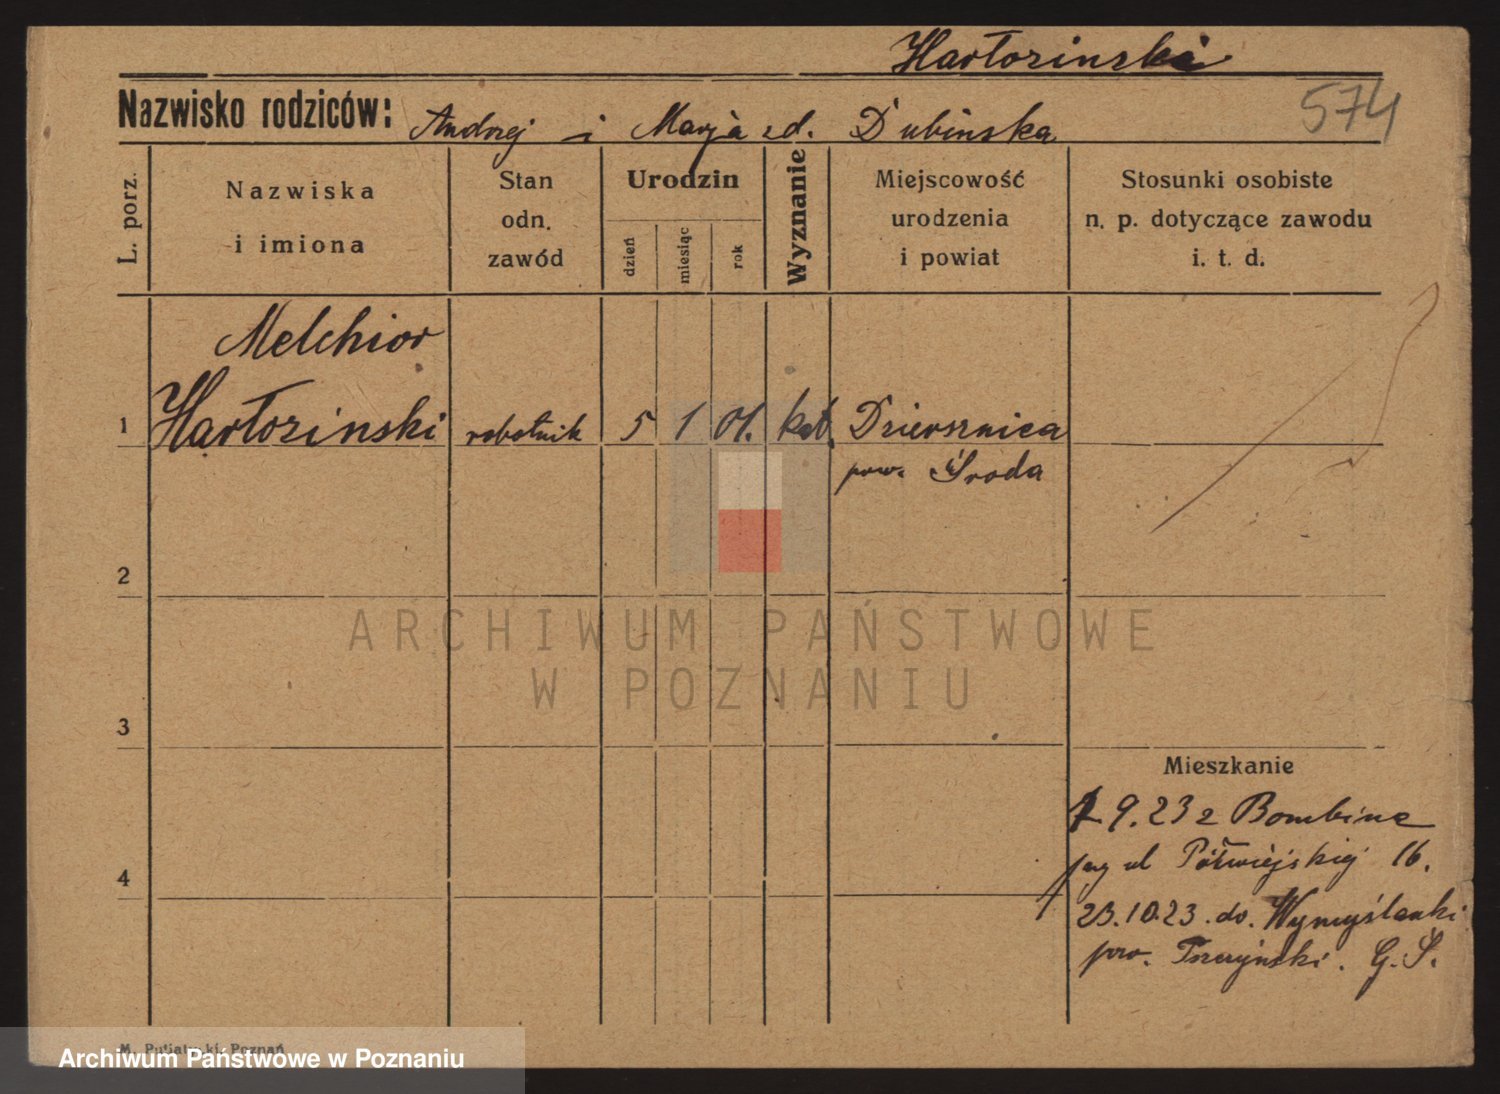 Hartozinski
574
Nazwisko rodziców: Andrzej i Marja zd. Dubinska
L. porz.
Nazwiska
i imiona
Stan
odn.
zawód
Urodzin
dzień
miesiąc
rok
Wyznanie
Miejscowość
urodzenia
i powiat
Stosunki osobiste
n. p. dotyczące zawodu
i. t. d.
Melchior
1 Hartozinski robotnik 5 1 01. kat. Dzierznica
pow. Środa
2
3
4
Mieszkanie
9.23 z
ul Półwiejskiej 16.
23.10.23. do. Wymyślanki
pow. G.S.
ARCHIWUM PAŃSTWOWE
W POZNANIU
M. Putiatycki, Poznań
Archiwum Państwowe w Poznaniu